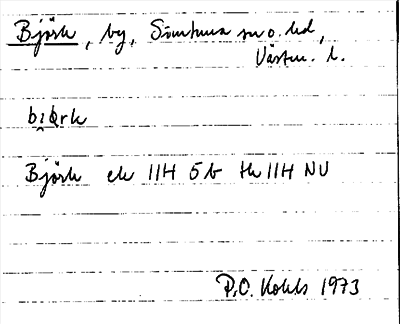 Björk, by, Simtuna sn o. hd,
Västm. l.
bi̯ǿrk
Björk ek 11H 5b tk 11H NV
P.O. Kohls 1973